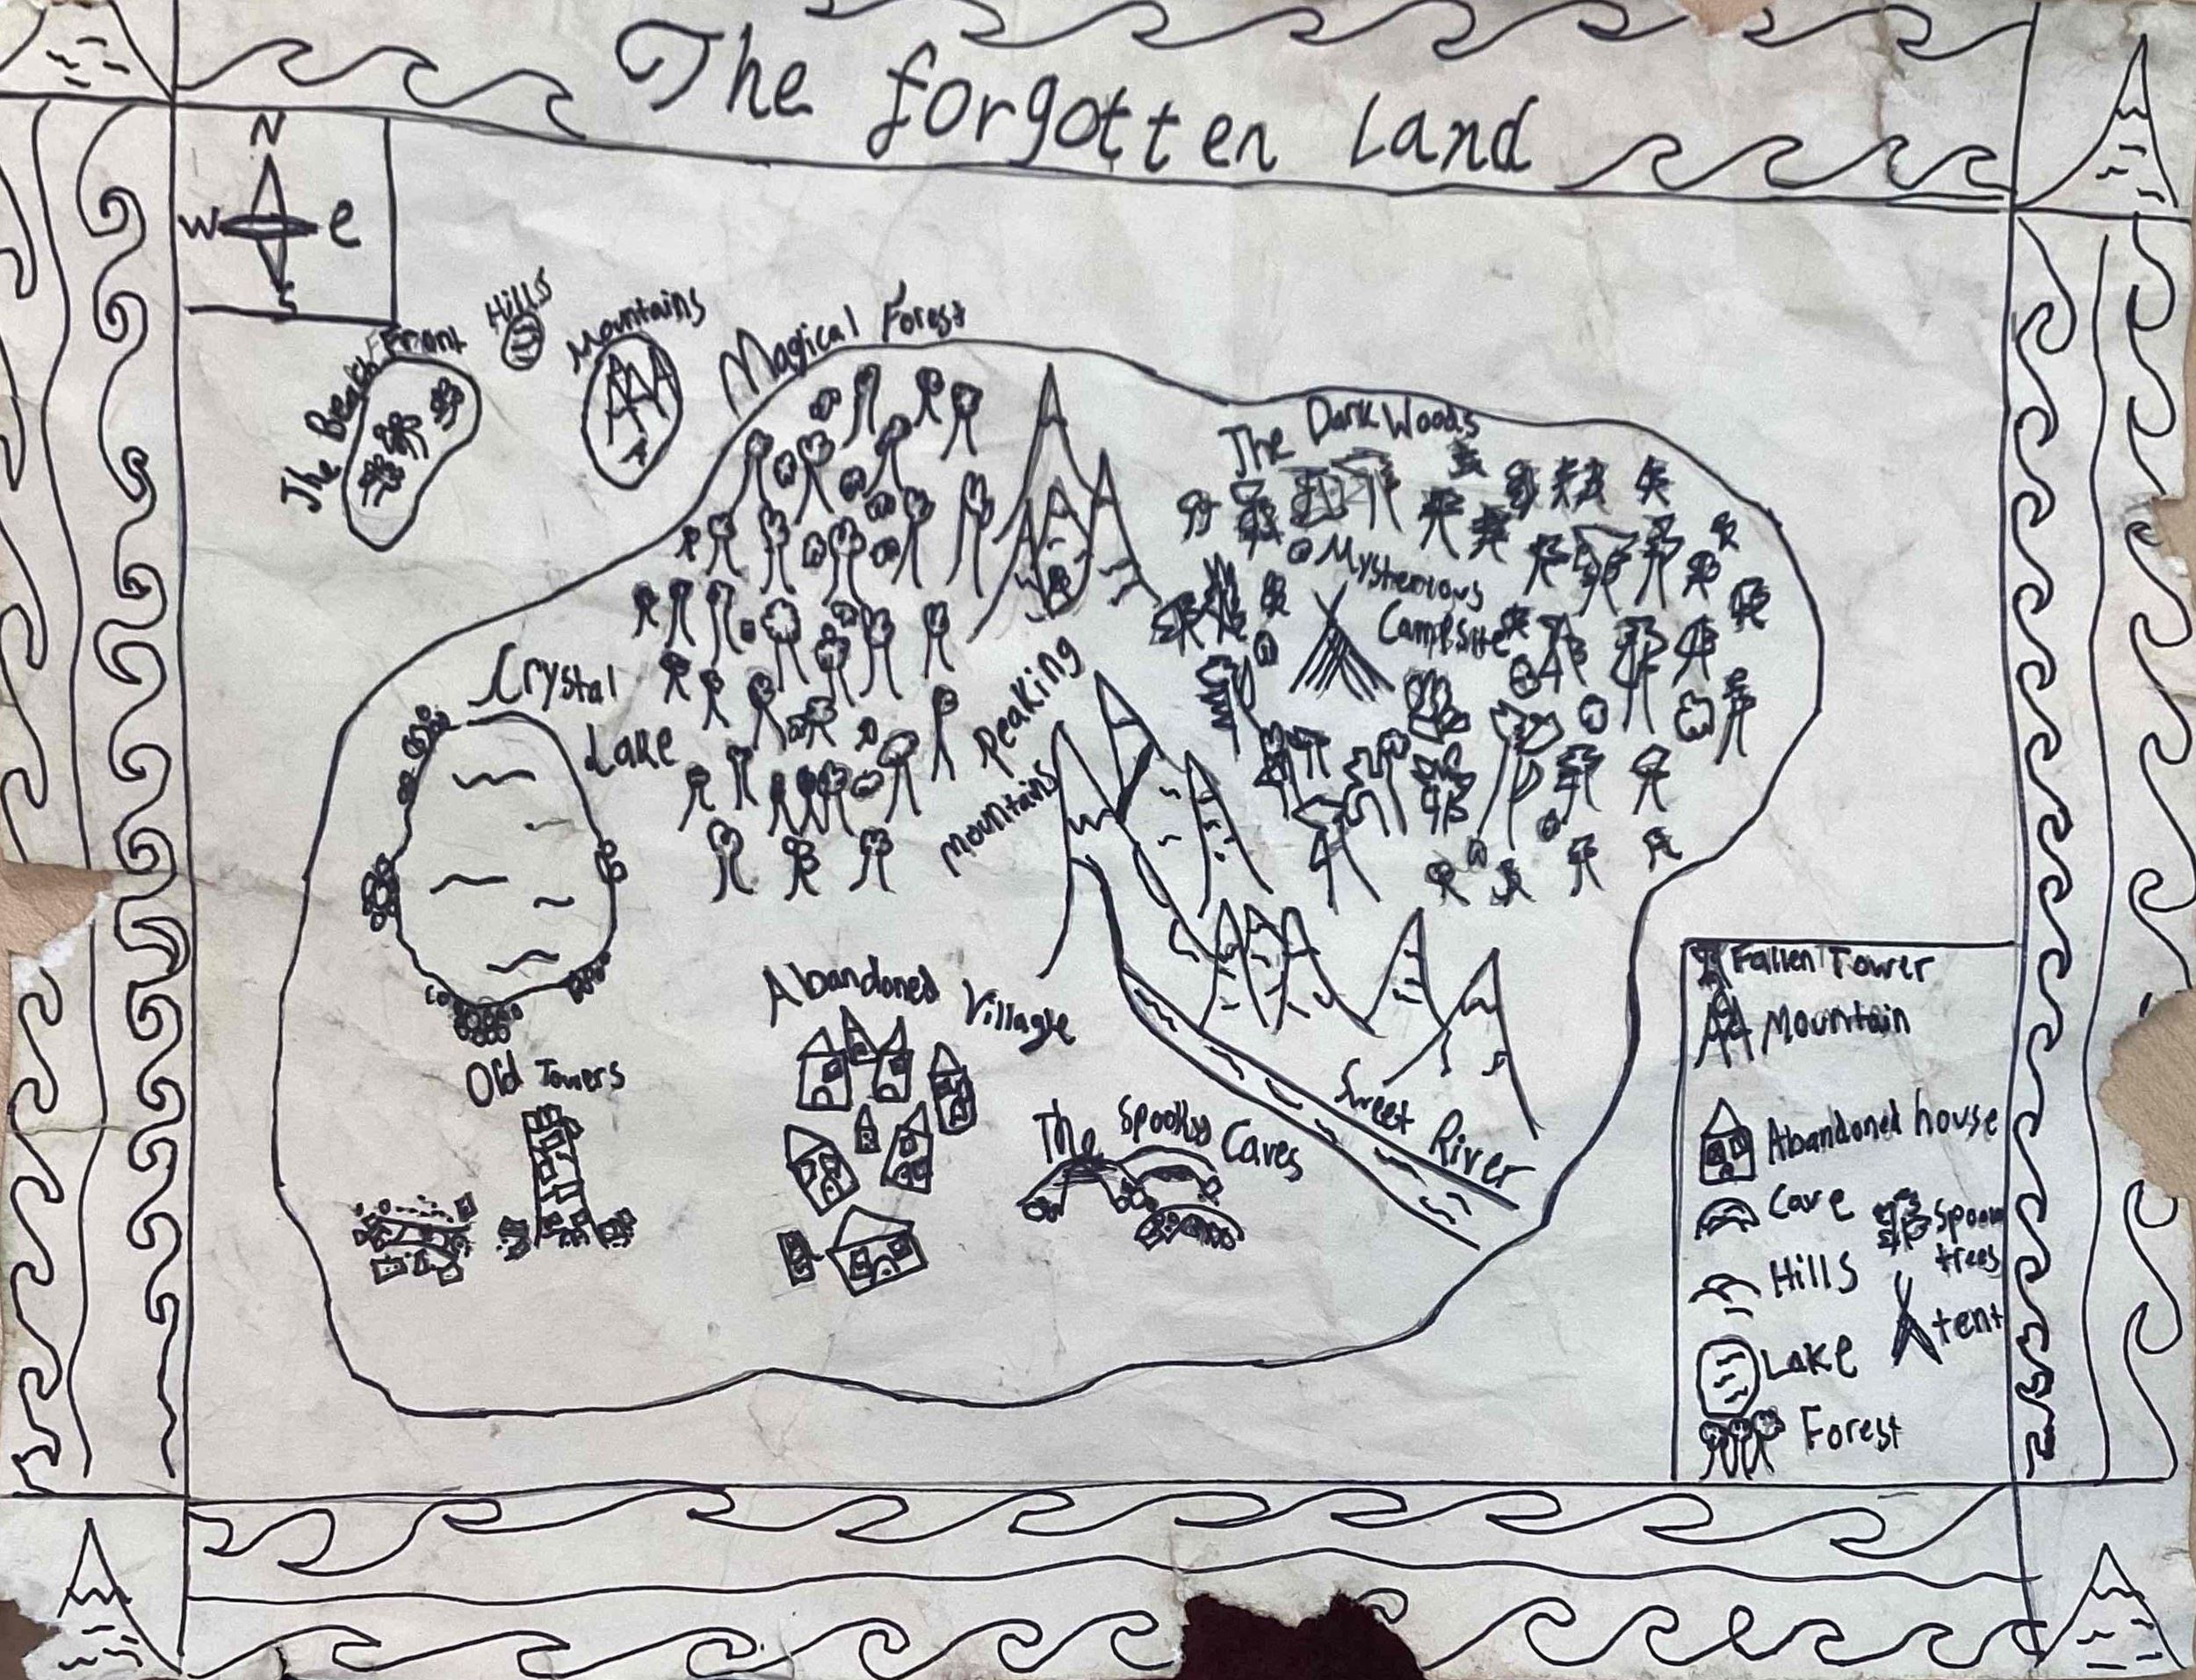 The forgotten Land
N
W e
S
The Beach Front
Hills
Mountains
Magical Forest
The Dark Woods
Mysterious
Campsite
Crystal
Lake
Peaking
Mountains
Abandoned Village
Old Towers
The Spooky Caves
Sweet River
Fallen Tower
Mountain
Abandoned house
Cave
Spooky
trees
Hills
tent
Lake
Forest